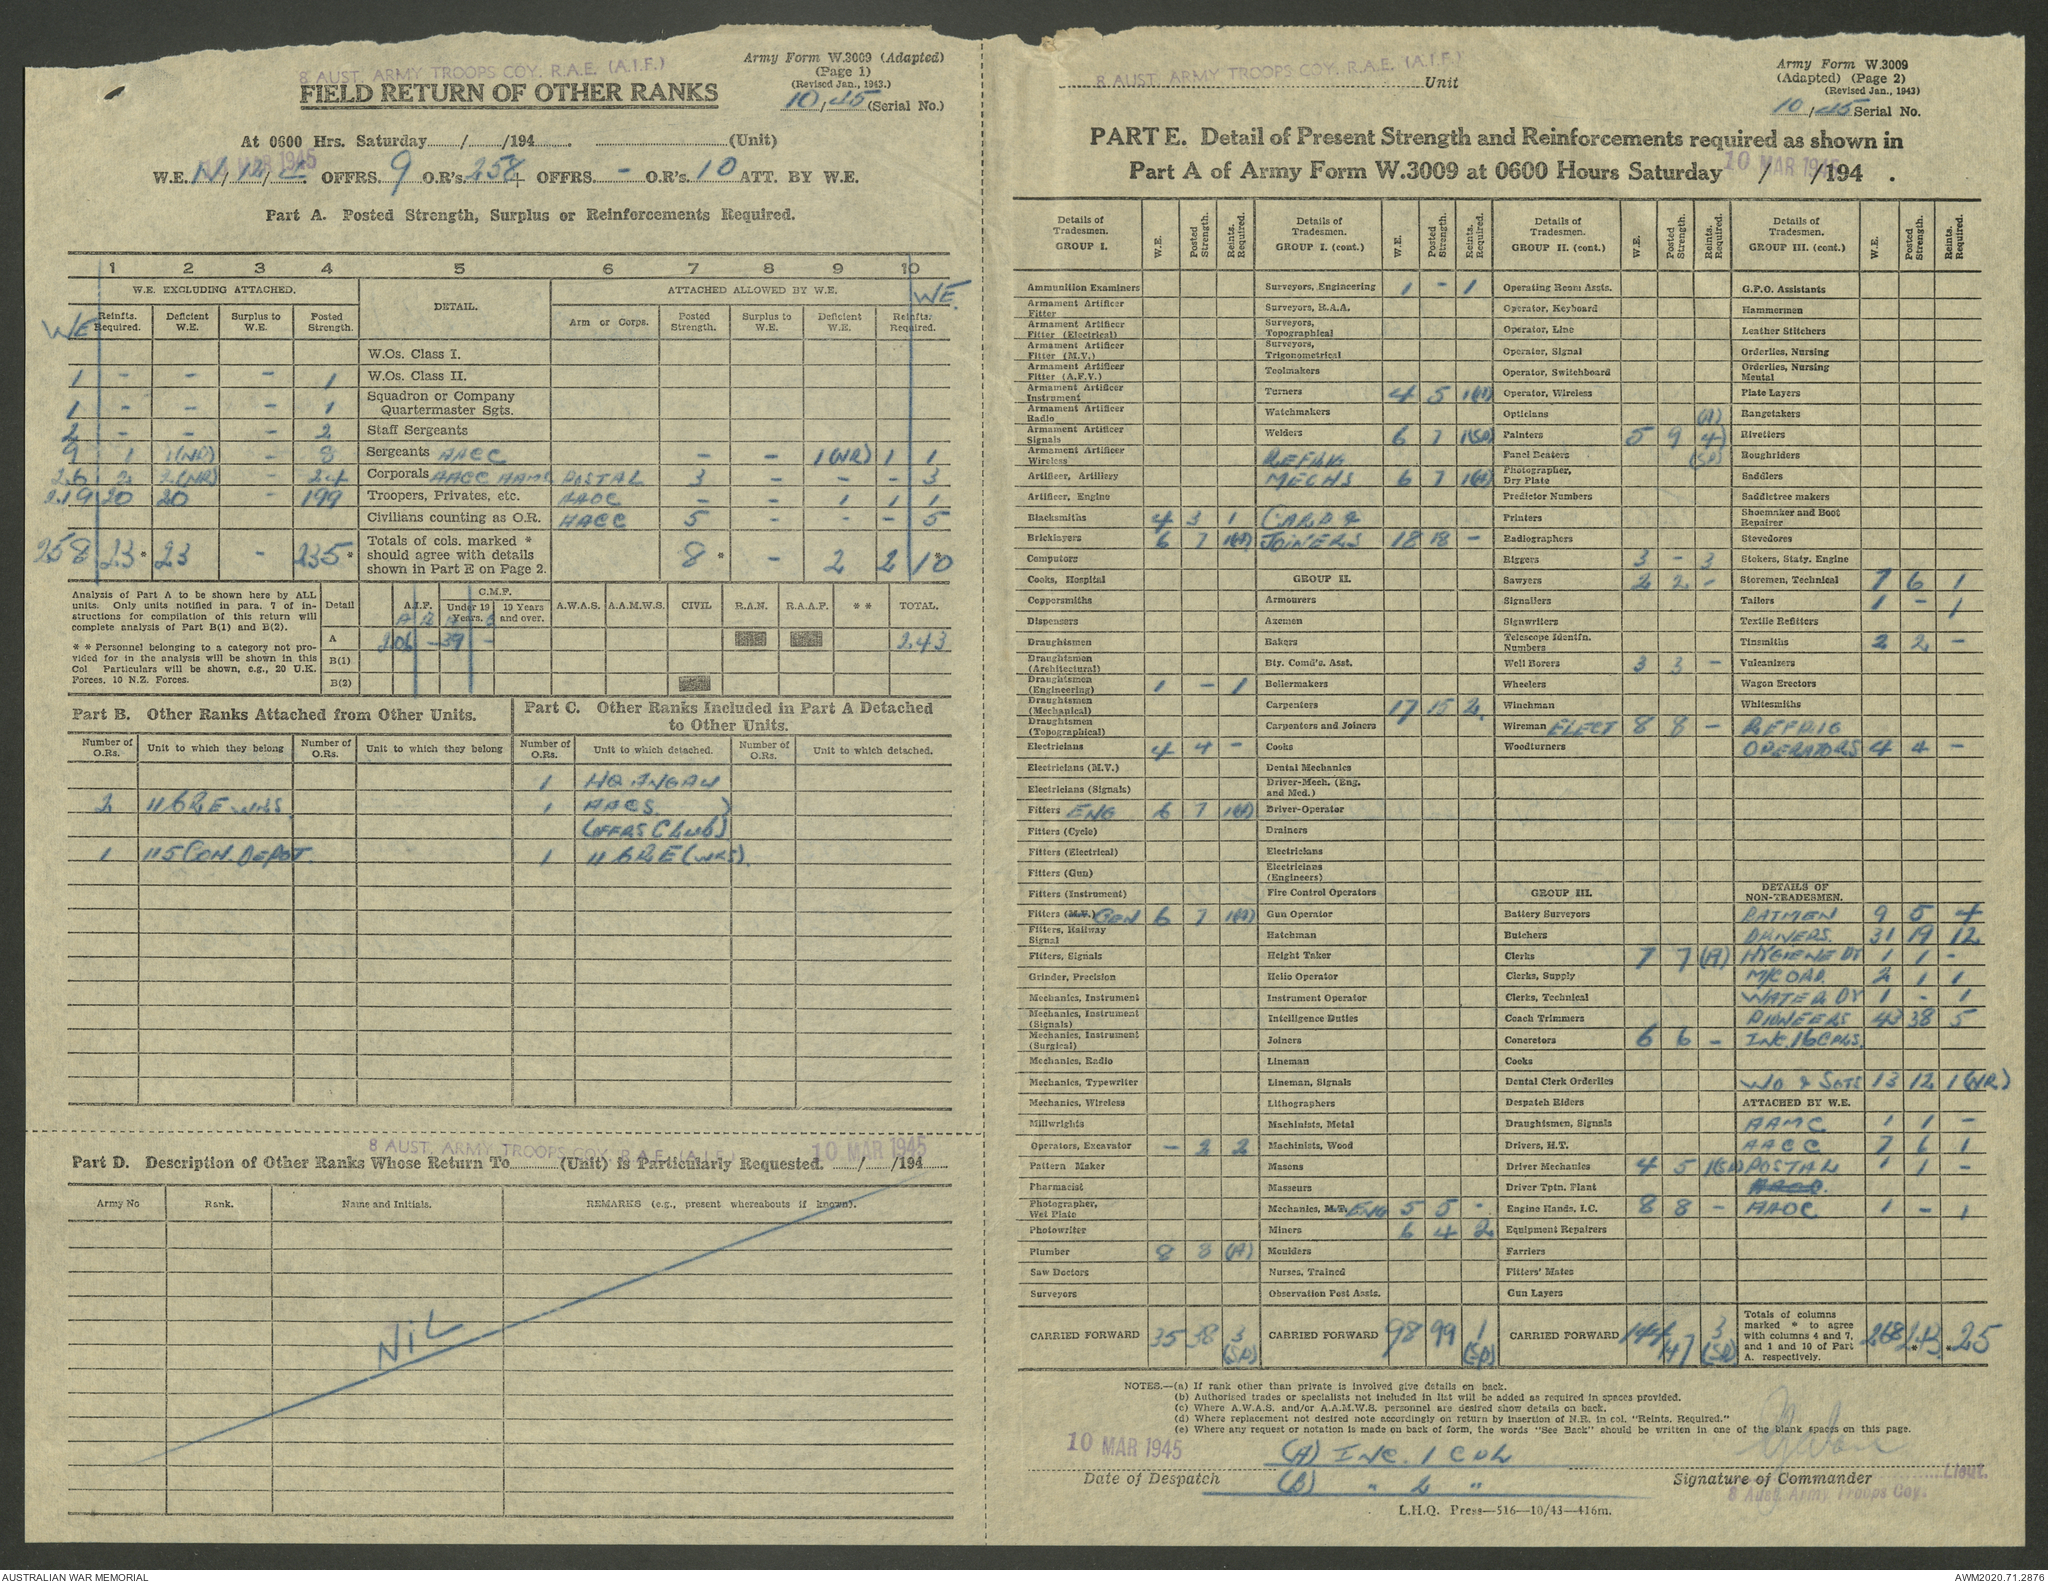 8 AUST. ARMY TROOPS COY. R.A.E. (A.I.F.)
FIELD RETURN OF OTHER RANKS
Army Form W.3009 (Adapted)
(Page 1)
(Revised Jan., 1943.)
10/45 (Serial No.)
At 0600 Hrs. Saturday....../....../194...... (Unit)
10 MAR 1945
W.E. OFFRS. 9 O.R's. 258 + OFFRS. - O.R's. 10 ATT. BY W.E.
Part A. Posted Strength, Surplus or Reinforcements Required.
1 2 3 4 5 6 7 8 9 10
W.E. EXCLUDING ATTACHED. DETAIL. ATTACHED ALLOWED BY W.E. WE.
WE Reinfts. Required. Deficient W.E. Surplus to W.E. Posted Strength. Arm or Corps. Posted Strength. Surplus to W.E. Deficient W.E. Reinfts. Required.
W.Os. Class I.
1 - - - 1 W.Os. Class II.
1 - - - 1 Squadron or Company Quartermaster Sgts.
2 - - - 2 Staff Sergeants
9 1 1(NR) - 8 Sergeants AACC - - 1(NR) 1 1
26 2 2(NR) - 24 Corporals AACC AAMC POSTAL 3 - - - 3
219 20 20 - 199 Troopers, Privates, etc. AAOC - - 1 1 1
Civilians counting as O.R. AACC 5 - - - 5
258 23* 23 - 235* Totals of cols. marked * should agree with details shown in Part E on Page 2. 8* - 2 2 10
Analysis of Part A to be shown here by ALL units. Only units notified in para. 7 of instructions for compilation of this return will complete analysis of Part B(1) and B(2).
* * Personnel belonging to a category not provided for in the analysis will be shown in this Col. Particulars will be shown, e.g., 20 U.K. Forces, 10 N.Z. Forces.
Detail A.I.F. C.M.F. Under 19 Years. 19 Years and over. A.W.A.S. A.A.M.W.S. CIVIL R.A.N. R.A.A.F. * * TOTAL.
A 206 - 39 - 243
B(1)
B(2)
Part B. Other Ranks Attached from Other Units.
Part C. Other Ranks Included in Part A Detached to Other Units.
Number of O.Rs. Unit to which they belong Number of O.Rs. Unit to which they belong Number of O.Rs. Unit to which detached. Number of O.Rs. Unit to which detached.
1 HQ ANGAU
2 11 CRE WKS. 1 AACS
(OFFRS CLUB)
1 115 CON. DEPOT. 1 11 CRE (WKS).
8 AUST. ARMY TROOPS COY. R.A.E. (A.I.F.) 10 MAR 1945
Part D. Description of Other Ranks Whose Return To............(Unit) is Particularly Requested. ....../....../194......
Army No Rank. Name and Initials. REMARKS (e.g., present whereabouts if known).
NIL
8 AUST. ARMY TROOPS COY. R.A.E. (A.I.F.) Unit
Army Form W.3009
(Adapted) (Page 2)
(Revised Jan., 1943)
10/45 Serial No.
PART E. Detail of Present Strength and Reinforcements required as shown in
Part A of Army Form W.3009 at 0600 Hours Saturday / /194 .
10 MAR 1945
Details of Tradesmen. GROUP I. W.E. Posted Strength. Reints. Required.
Ammunition Examiners
Armament Artificer Fitter
Armament Artificer Fitter (Electrical)
Armament Artificer Fitter (M.V.)
Armament Artificer Fitter (A.F.V.)
Armament Artificer Instrument
Armament Artificer Radio
Armament Artificer Signals
Armament Artificer Wireless
Artificer, Artillery
Artificer, Engine
Blacksmiths 4 3 1
Bricklayers 6 7 1(A)
Computors
Cooks, Hospital
Coppersmiths
Dispensers
Draughtsmen
Draughtsmen (Architectural)
Draughtsmen (Engineering) 1 - 1
Draughtsmen (Mechanical)
Draughtsmen (Topographical)
Electricians 4 4 -
Electricians (M.V.)
Electricians (Signals)
Fitters ENG 6 7 1(A)
Fitters (Cycle)
Fitters (Electrical)
Fitters (Gun)
Fitters (Instrument)
Fitters (M.V.) GEN 6 7 1(A)
Fitters, Railway Signal
Fitters, Signals
Grinder, Precision
Mechanics, Instrument
Mechanics, Instrument (Signals)
Mechanics, Instrument (Surgical)
Mechanics, Radio
Mechanics, Typewriter
Mechanics, Wireless
Millwrights
Operators, Excavator - 2 2
Pattern Maker
Pharmacist
Photographer, Wet Plate
Photowriter
Plumber 8 8 (A)
Saw Doctors
Surveyors
CARRIED FORWARD 35 38 3 (SP)
Details of Tradesmen. GROUP I. (cont.) W.E. Posted Strength. Reints. Required.
Surveyors, Engineering 1 - 1
Surveyors, R.A.A.
Surveyors, Topographical
Surveyors, Trigonometrical
Toolmakers
Turners 4 5 1(A)
Watchmakers
Welders 6 7 1(SP)
REFRIG
MECHS 6 7 1(A)
CARP &
JOINERS 18 18 -
GROUP II.
Armourers
Axemen
Bakers
Bty. Comd's. Asst.
Boilermakers
Carpenters 17 15 2
Carpenters and Joiners
Cooks
Dental Mechanics
Driver-Mech. (Eng. and Med.)
Driver-Operator
Drainers
Electricians
Electricians (Engineers)
Fire Control Operators
Gun Operator
Hatchman
Height Taker
Helio Operator
Instrument Operator
Intelligence Duties
Joiners
Lineman
Lineman, Signals
Lithographers
Machinists, Metal
Machinists, Wood
Masons
Masseurs
Mechanics, M.T. ENG 5 5 -
Miners 6 4 2
Moulders
Nurses, Trained
Observation Post Assts.
CARRIED FORWARD 98 99 1 (SP)
Details of Tradesmen. GROUP II. (cont.) W.E. Posted Strength. Reints. Required.
Operating Room Assts.
Operator, Keyboard
Operator, Line
Operator, Signal
Operator, Switchboard
Operator, Wireless
Opticians (A)
Painters 5 9 4
Panel Beaters (SP)
Photographer, Dry Plate
Predictor Numbers
Printers
Radiographers
Riggers 3 - 3
Sawyers 2 2 -
Signallers
Signwriters
Telescope Identfn. Numbers
Well Borers 3 3 -
Wheelers
Winchman
Wireman ELECT 8 8 -
Woodturners
GROUP III.
Battery Surveyors
Butchers
Clerks 7 7 (A)
Clerks, Supply
Clerks, Technical
Coach Trimmers
Concretors 6 6 -
Cooks
Dental Clerk Orderlies
Despatch Riders
Draughtsmen, Signals
Drivers, H.T.
Driver Mechanics 4 5 1(SP)
Driver Tptn. Plant
Engine Hands, I.C. 8 8 -
Equipment Repairers
Farriers
Fitters' Mates
Gun Layers
CARRIED FORWARD 144 147 3 (SP)
Details of Tradesmen. GROUP III. (cont.) W.E. Posted Strength. Reints Required.
G.P.O. Assistants
Hammermen
Leather Stitchers
Orderlies, Nursing
Orderlies, Nursing Mental
Plate Layers
Rangetakers
Rivetters
Roughriders
Saddlers
Saddletree makers
Shoemaker and Boot Repairer
Stevedores
Stokers, Staty. Engine
Storemen, Technical 7 6 1
Tailors 1 - 1
Textile Refitters
Tinsmiths 2 2 -
Vulcanizers
Wagon Erectors
Whitesmiths
REFRIG
OPERATORS 4 4 -
DETAILS OF NON-TRADESMEN.
BATMEN 9 5 4
DRIVERS. 31 19 12
HYGIENE DY 1 1 -
M/C ORD. 2 1 1
WATER DY 1 - 1
PIONEERS 43 38 5
INC. 16 CPLS.
WO & SGTS 13 12 1(NR)
ATTACHED BY W.E.
AAMC 1 1 -
AACC 7 6 1
POSTAL 1 1 -
AAOC 1 - 1
Totals of columns marked * to agree with columns 4 and 7, and 1 and 10 of Part A. respectively. 268 243* *25
NOTES.—(a) If rank other than private is involved give details on back.
(b) Authorised trades or specialists not included in list will be added as required in spaces provided.
(c) Where A.W.A.S. and/or A.A.M.W.S. personnel are desired show details on back.
(d) Where replacement not desired note accordingly on return by insertion of N.R. in col. "Reints. Required."
(e) Where any request or notation is made on back of form, the words "See Back" should be written in one of the blank spaces on this page.
10 MAR 1945
(A) INC. 1 CPL
Date of Despatch
(B) " 2 "
Signature of Commander
Lieut.
8 Aust. Army Troops Coy.
L.H.Q. Press—516—10/43—416m.
AUSTRALIAN WAR MEMORIAL
AWM2020.71.2876